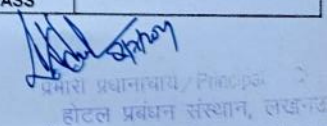 ASS
प्रभारी प्रधानाचार्य / Principal
होटल प्रबंधन संस्थान, लखनऊ